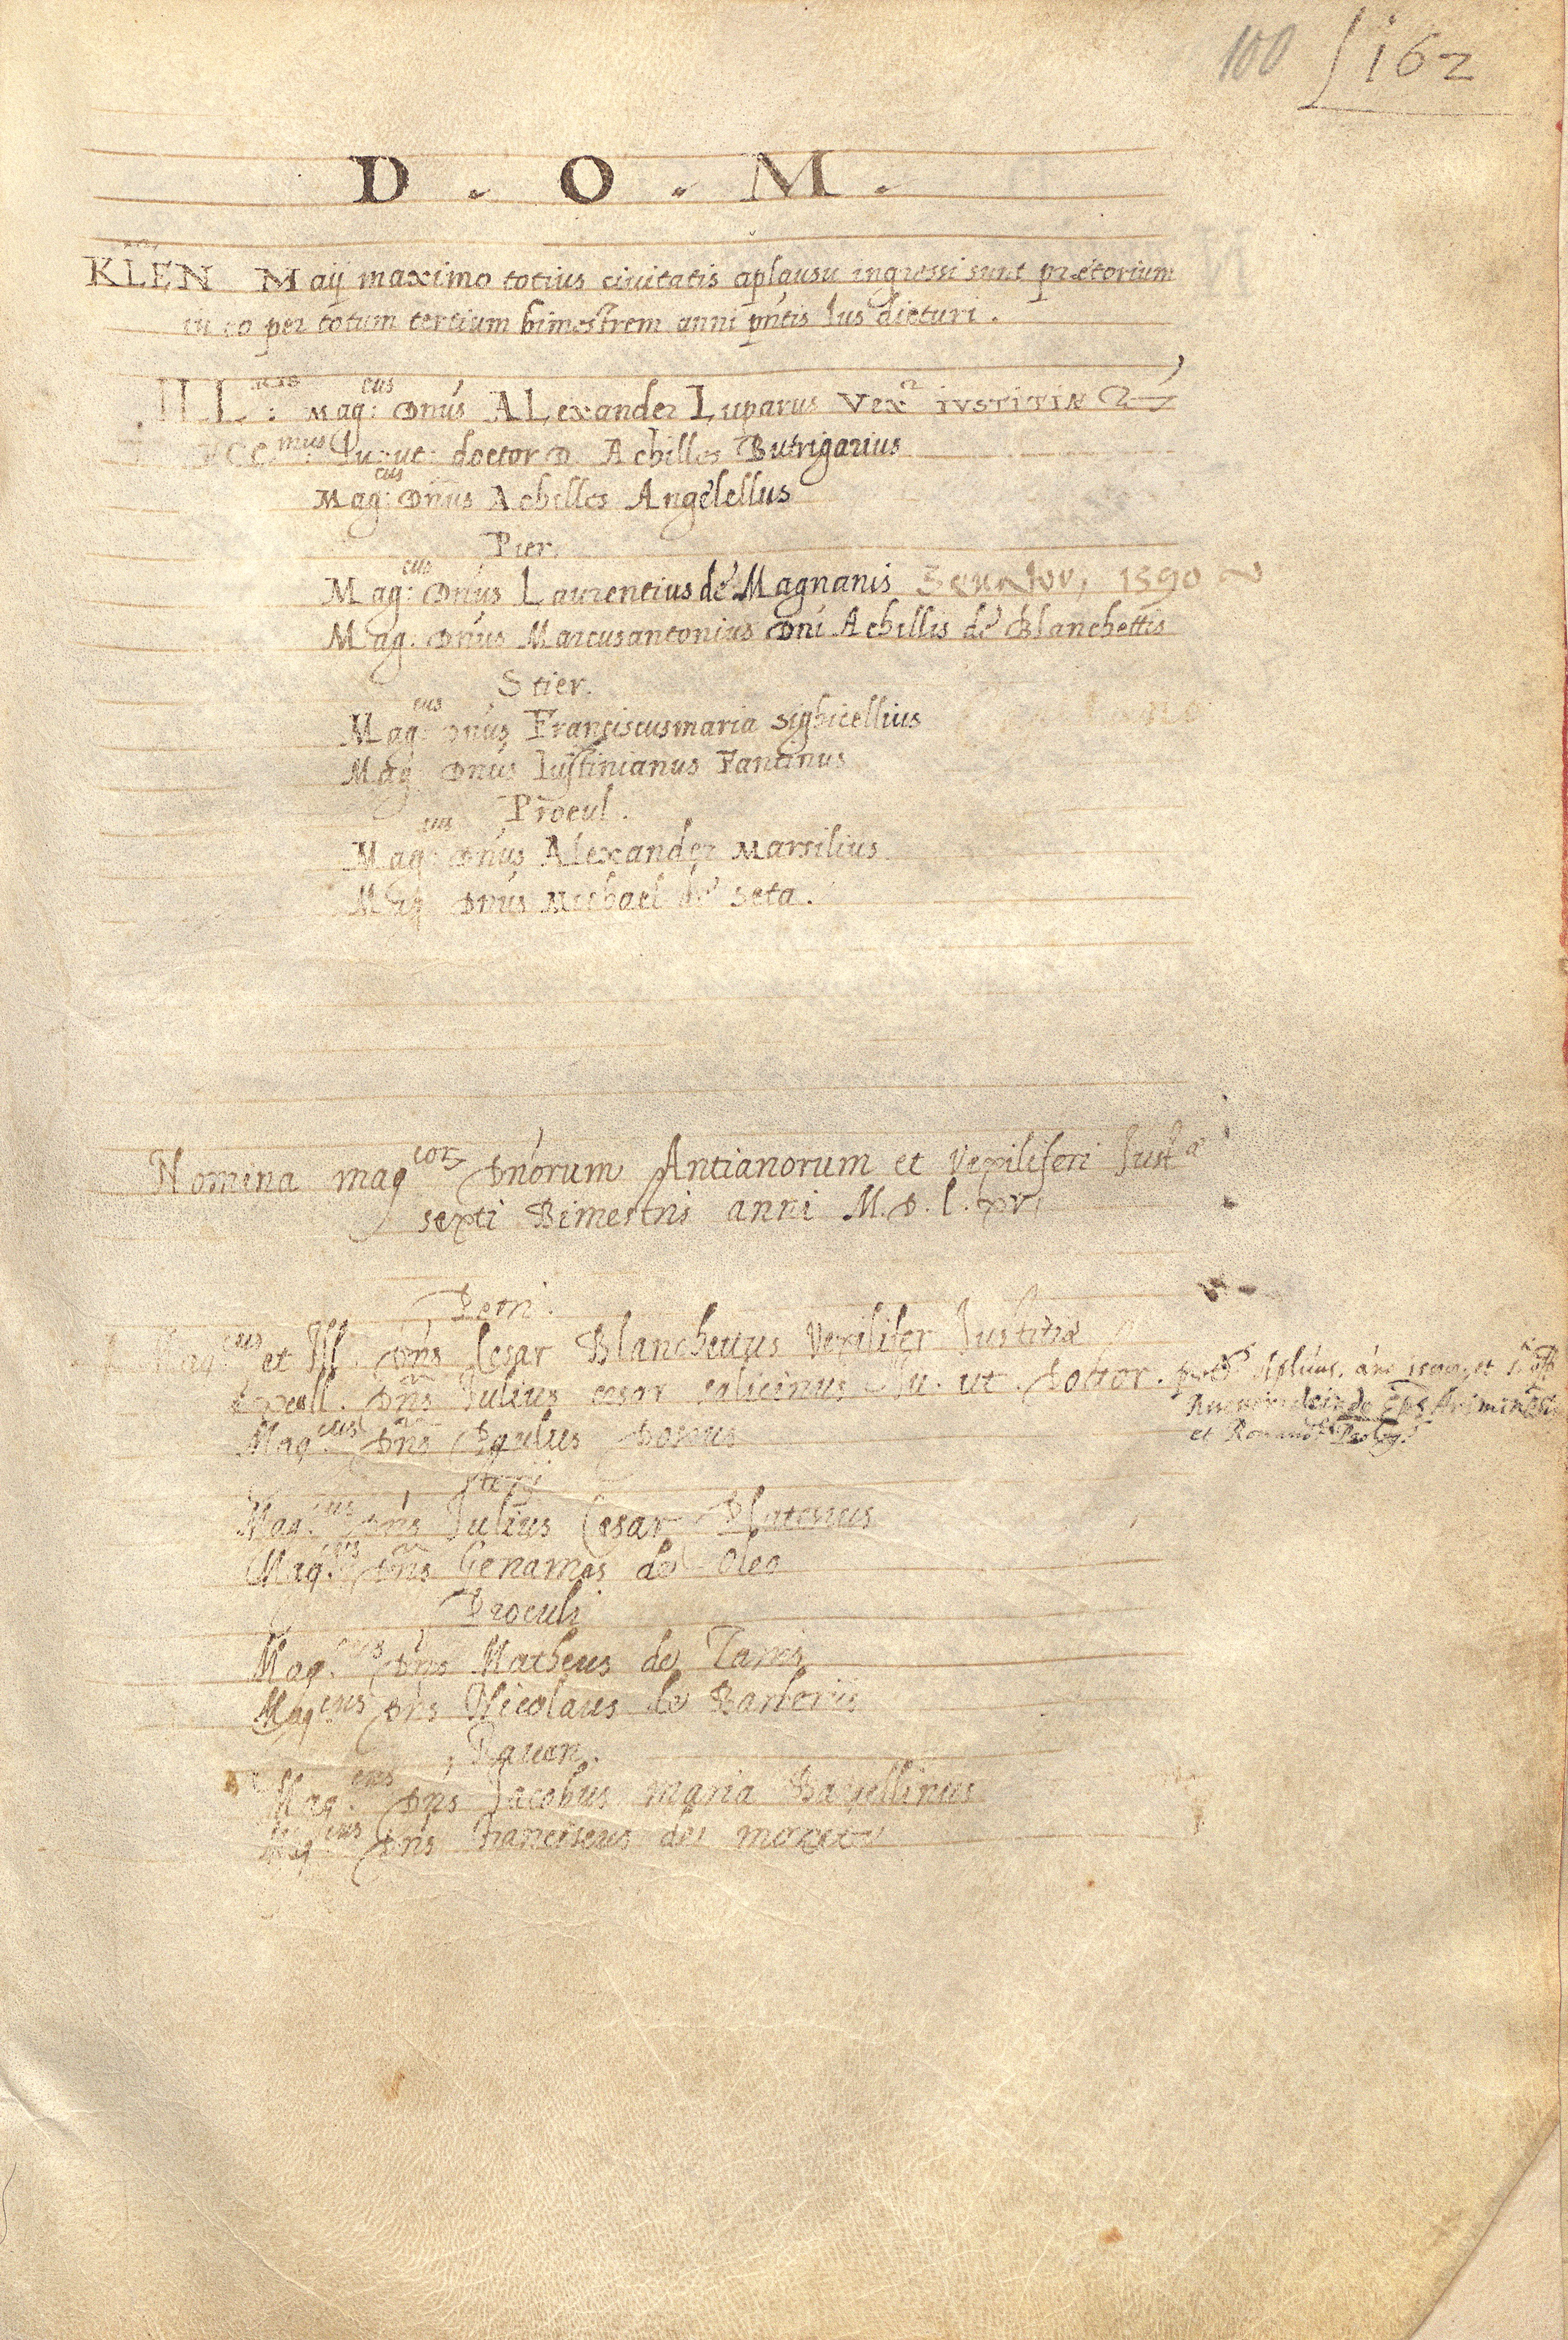 100 162
D . O . M .
KLEN Maij maximo totius ciuitatis aplausu ingressi sunt prætorium
in eo per totum tertium bimestrem anni pñtis Ius dicturi .
ILL : Mag:cus Dnús ALexander Luparus Vex iustitiæ
mus Iu: ut: doctor D. Achilles Butrigarius
Mag:cus Dnus Achilles Angelellus
Pier.
Mag:cus Dnús Laurentius de Magnanis Senator, 1590
Mag. Dnús Marcusantonius Dni Achillis de Blanchettis
Stier.
Mag:cus Dnús Franciscusmaria Sighicellius
Mag Dnús Iustinianus Fantinus
Procul .
Mag: Dnús Alexander Marsilius
Mag Dnus Michael de Seta .
Nomina magcor Dnórum Antianorum et Vexiliferi Just
sexti Bimestris anni M. D. l. xv
Petri .
Mag.cus et Ill. Dns Cesar Blanchettus Vexilifer Justitiæ
Excell. Dns Julius cesar salicinus Ju. ut. Doctor .
deinde Eps Ariminēsis
et
Mag.cus Dns Paulus Dosius
Sterij
Mag.cus Dns Julius Cesar
Mag.cus Dns de Oleo
Proculi
Mag.cus Dns Matheus de
Magcus Dns Nicolaus de Barberiis
Rauen .
Mag.cus Dns Jacobus maria
Mag.cus Dns Franciscus de